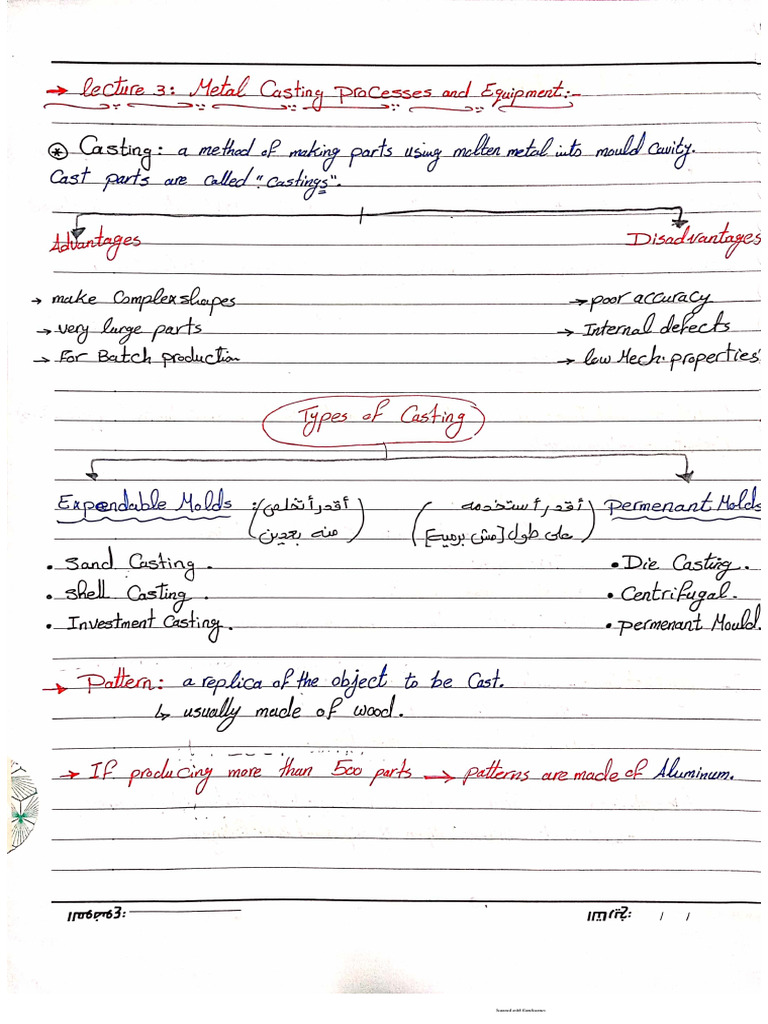 → Lecture 3: Metal Casting Processes and Equipment:-
* Casting: a method of making parts using molten metal into mould cavity.
Cast parts are called "Castings".
Advantages
Disadvantages
→ make Complex shapes
→ poor accuracy
→ very large parts
→ Internal defects
→ For Batch production
→ low Mech. properties
Types of Casting
Expendable Molds : (أقدر أتخلص منه بعدين)
(أقدر أستخدمه على طول [مش برميه]) Permenant Molds
• Sand Casting.
• Die Casting.
• Shell Casting.
• Centrifugal.
• Investment Casting.
• permenant Mould.
→ Pattern: a replica of the object to be Cast.
↳ usually made of wood.
→ If producing more than 500 parts → patterns are made of Aluminum.